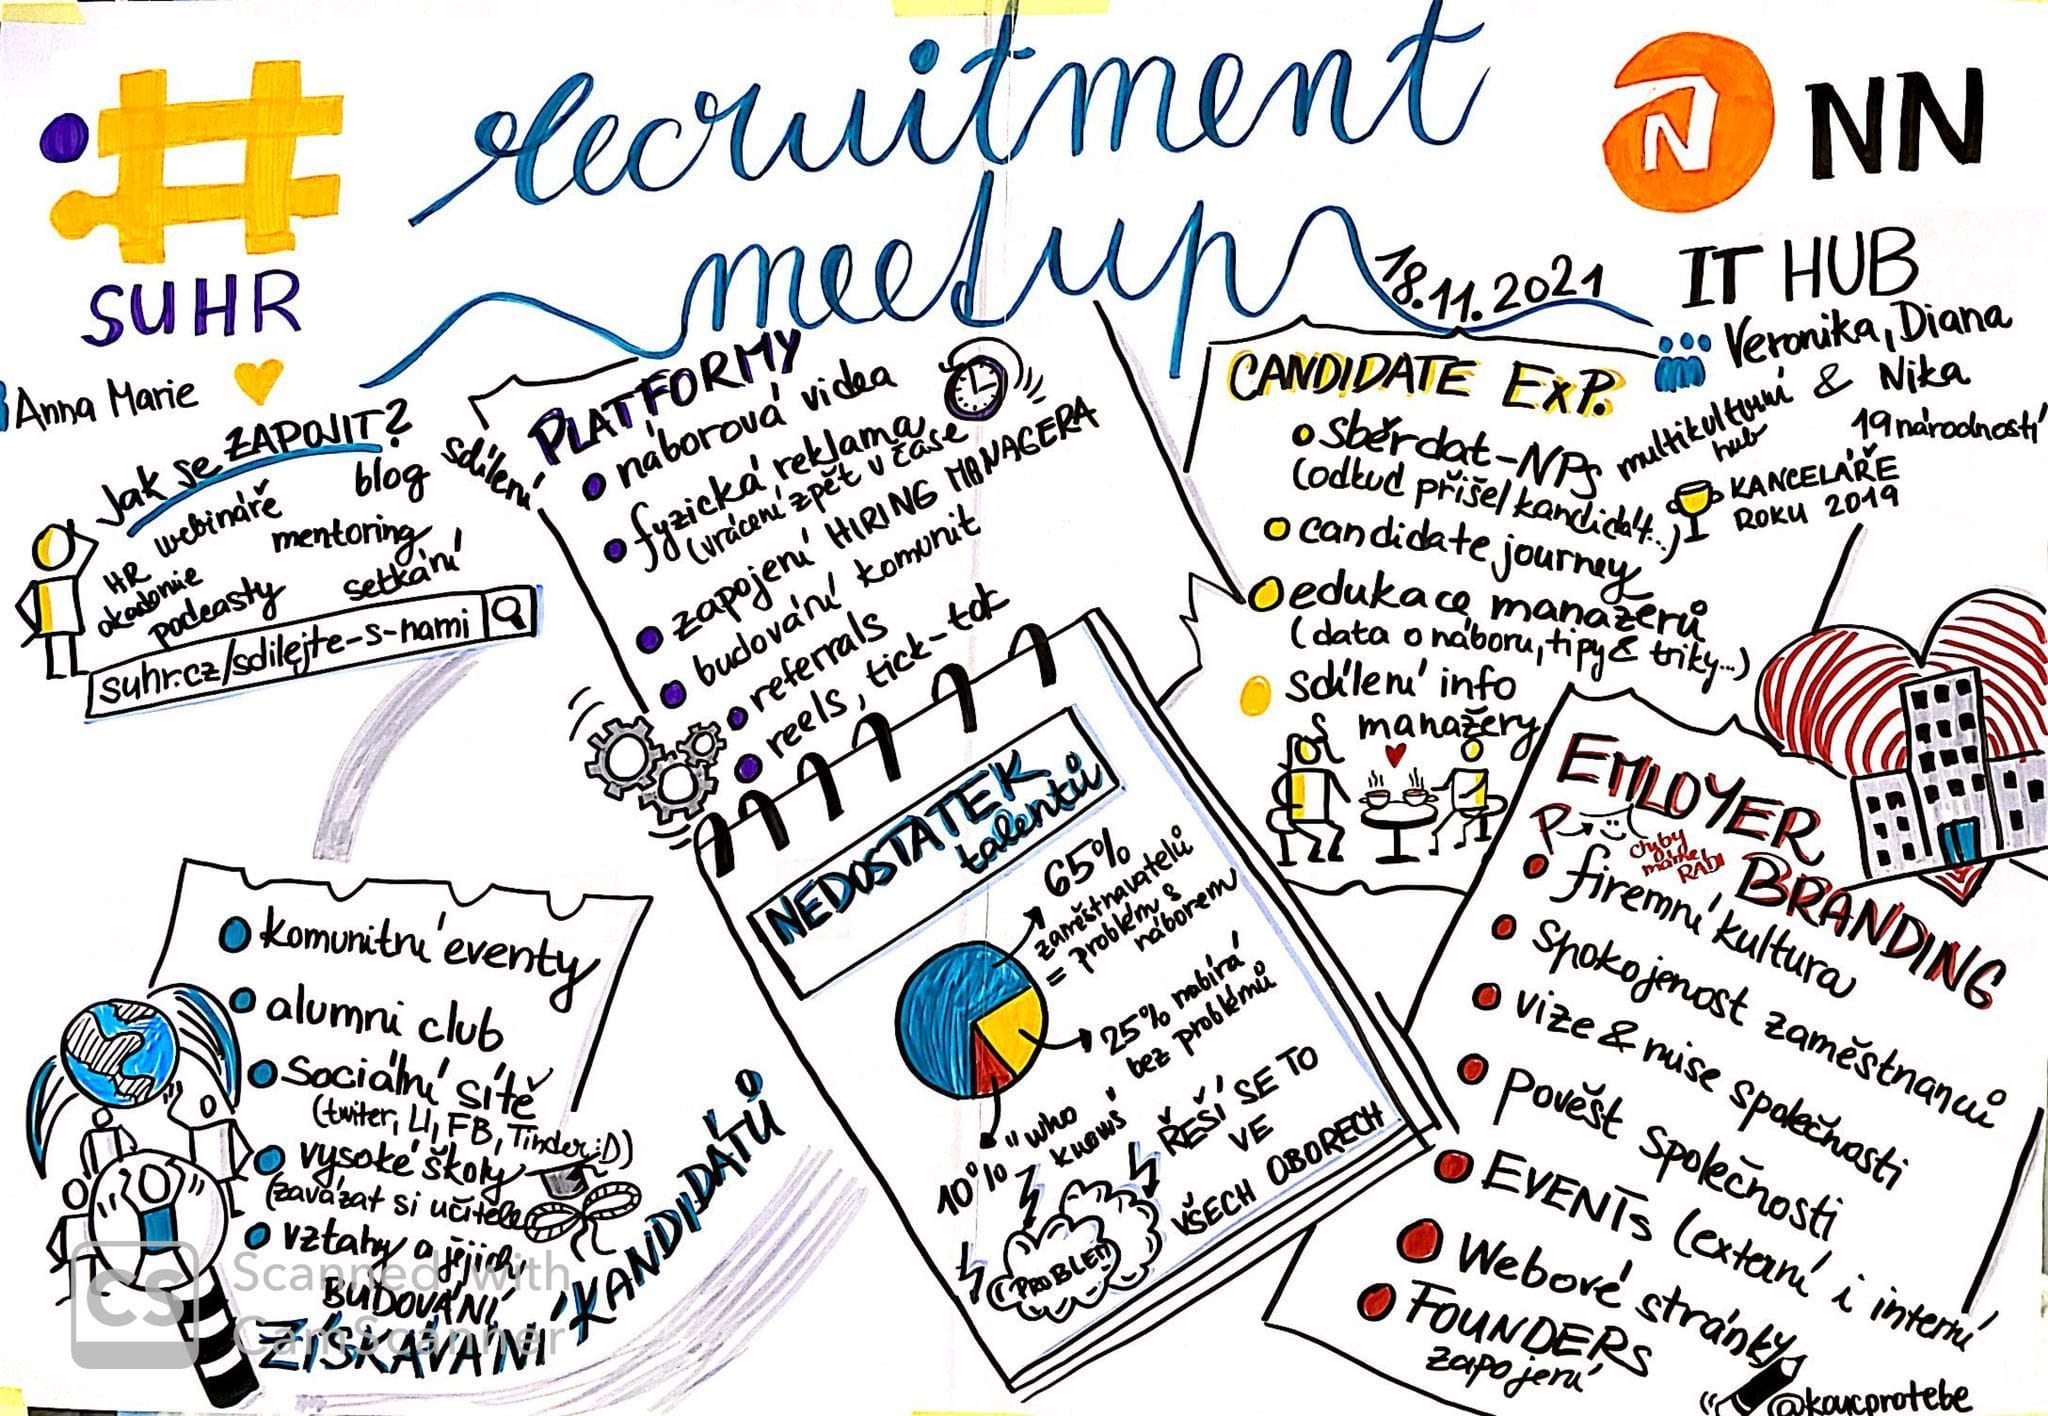 recruitment
meetup
18.11.2021
SUHR
Anna Marie
N
NN
IT HUB
Veronika, Diana
& Nika
multikulturní
hub
19 národností
KANCELÁŘE
ROKU 2019
Jak se ZAPOJIT?
webináře
blog
mentoring
HR
akademie
podcasty
setkání
suhr.cz/sdilejte-s-nami
PLATFORMY
sdílení
náborová videa
fyzická reklama
(vrácení zpět v čase
zapojení HIRING MANAGERA
budování komunit
referrals
reels, tick-tok
CANDIDATE EXP.
sběr dat - NPS
(odkud přišel kandidát...)
candidate journey
edukace manažerů
(data o náboru, tipy & triky...)
sdílení info
s manažery
NEDOSTATEK
talentů
65%
zaměstnavatelů
= problém s
náborem
25% nabírá
bez problémů
10% "who
knows"
ŘEŠÍ SE TO
VE
VŠECH OBORECH
PROBLEM
EMLOYER
P
chyby
máme
RÁDI
BRANDING
firemní kultura
spokojenost zaměstnanců
vize & mise společnosti
pověst společnosti
EVENTs (externí i interní
Webové stránky
FOUNDERS
zapojení
@koucprotebe
komunitní eventy
alumni club
sociální sítě
(twiter, LI, FB, Tinder :D)
vysoké školy
(zavázat si učitele
vztahy a jejich
BUDOVÁNÍ
ZÍSKÁVÁNÍ KANDIDÁTŮ
CS
Scanned with
CamScanner